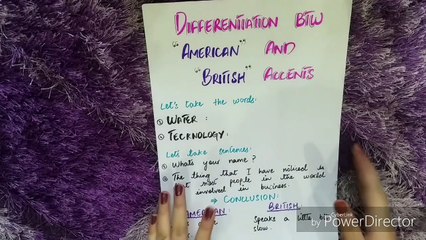 DIFFERENTIATION BTW
"AMERICAN" AND
"BRITISH" ACCENTS
Let's take the words:
WATER :
TECKNOLOGY :
Let's take sentences:
Whats your name ?
The thing that I have noticed is
most people in the world
involved in business.
⇒ CONCLUSION:
AMERICAN BRITISH
Speaks a
slow.
by PowerDirector